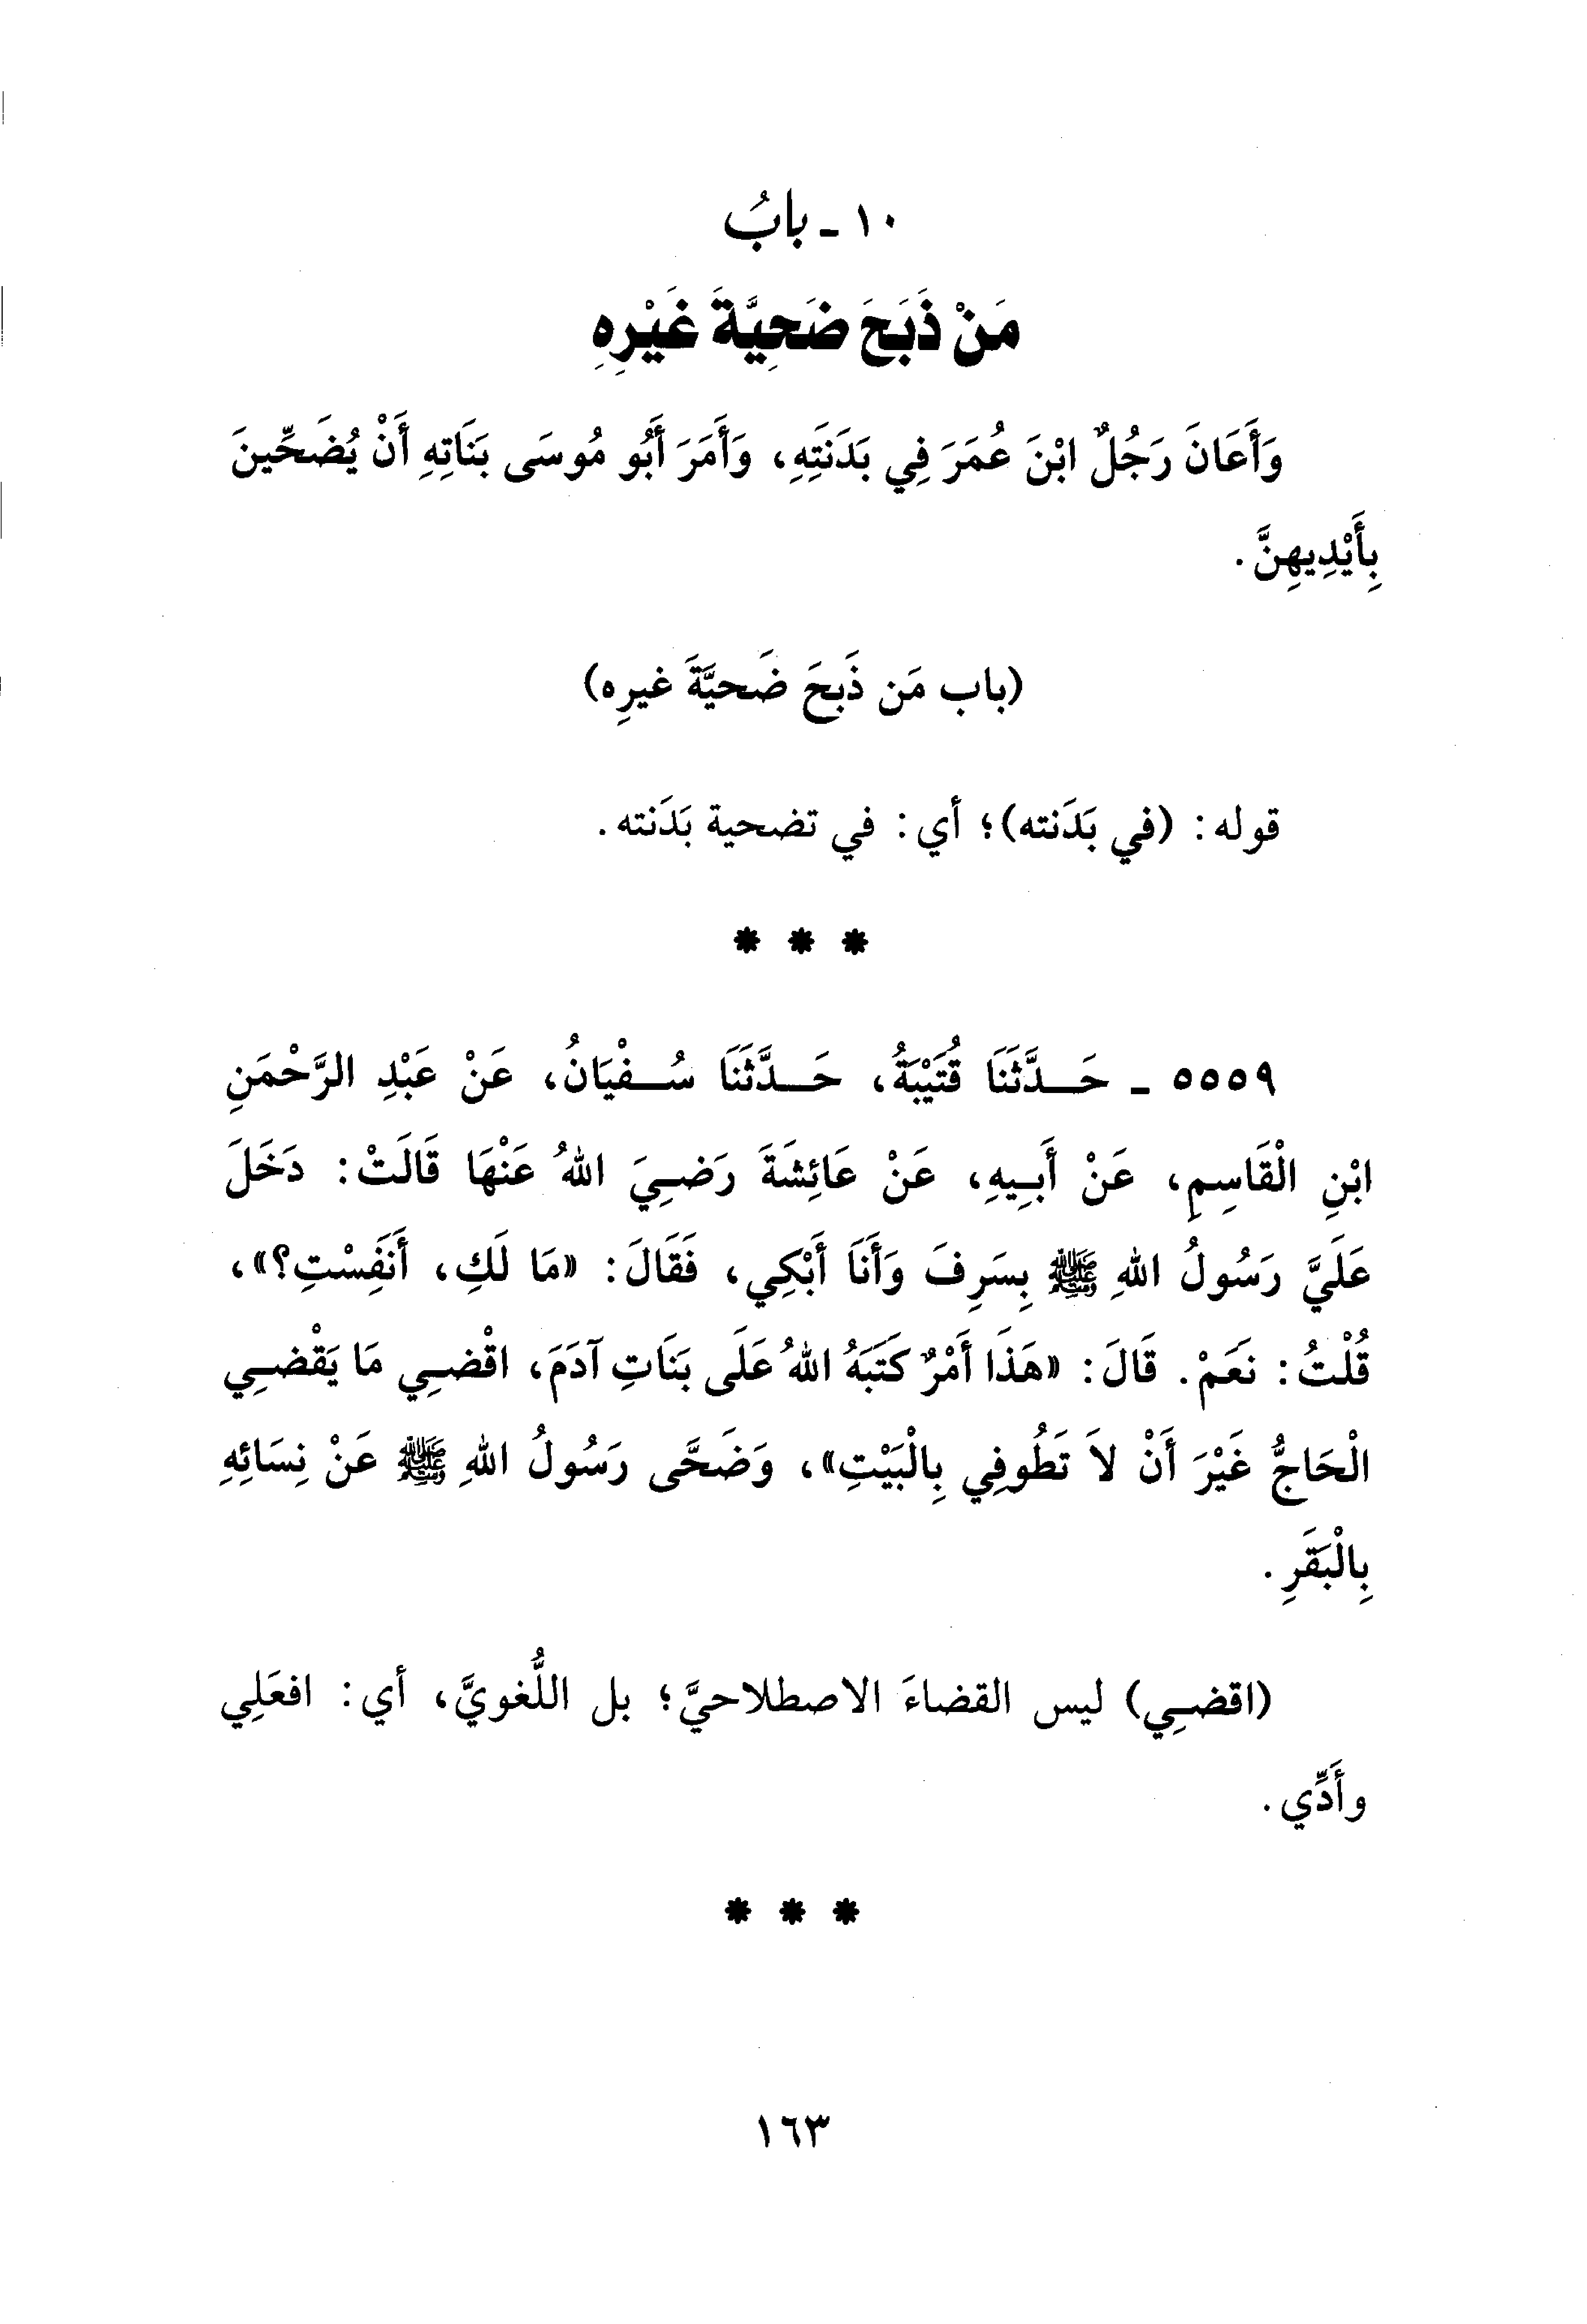 ١٠ - بابُ
مَنْ ذَبَحَ ضَحِيَّةَ غَيْرِهِ
وَأَعَانَ رَجُلٌ ابْنَ عُمَرَ فِي بَدَنَتِهِ، وَأَمَرَ أَبُو مُوسَى بَنَاتِهِ أَنْ يُضَحِّينَ
بِأَيْدِيهِنَّ.
(باب مَن ذَبحَ ضَحيَّةَ غيرِه)
قوله: (في بَدَنته)؛ أي: في تضحية بَدَنته.
* * *
٥٥٥٩ - حَـدَّثَنَا قُتَيْبَةُ، حَـدَّثَنَا سُـفْيَانُ، عَنْ عَبْدِ الرَّحْمَنِ
ابْنِ الْقَاسِمِ، عَنْ أَبِيهِ، عَنْ عَائِشَةَ رَضِيَ اللهُ عَنْهَا قَالَتْ: دَخَلَ
عَلَيَّ رَسُولُ اللهِ ﷺ بِسَرِفَ وَأَنَا أَبْكِي، فَقَالَ: «مَا لَكِ، أَنَفِسْتِ؟»،
قُلْتُ: نَعَمْ. قَالَ: «هَذَا أَمْرٌ كَتَبَهُ اللهُ عَلَى بَنَاتِ آدَمَ، اقْضِي مَا يَقْضِي
الْحَاجُّ غَيْرَ أَنْ لاَ تَطُوفِي بِالْبَيْتِ»، وَضَحَّى رَسُولُ اللهِ ﷺ عَنْ نِسَائِهِ
بِالْبَقَرِ.
(اقضِي) ليس القضاءَ الاصطلاحيَّ؛ بل اللُّغويَّ، أي: افعَلِي
وأَدِّي.
* * *
١٦٣